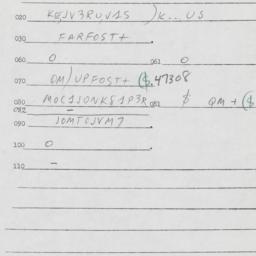 020 KEJV3RUVJ1S )K... US
030 FARFOST+ .
060 O 061 O
070 QM)UPFOST+ ($.47308
080 MOC1JONKS1P3R 081 $ QM + ($
082
090 JOMTOJVM7 .
100 O .
110 –